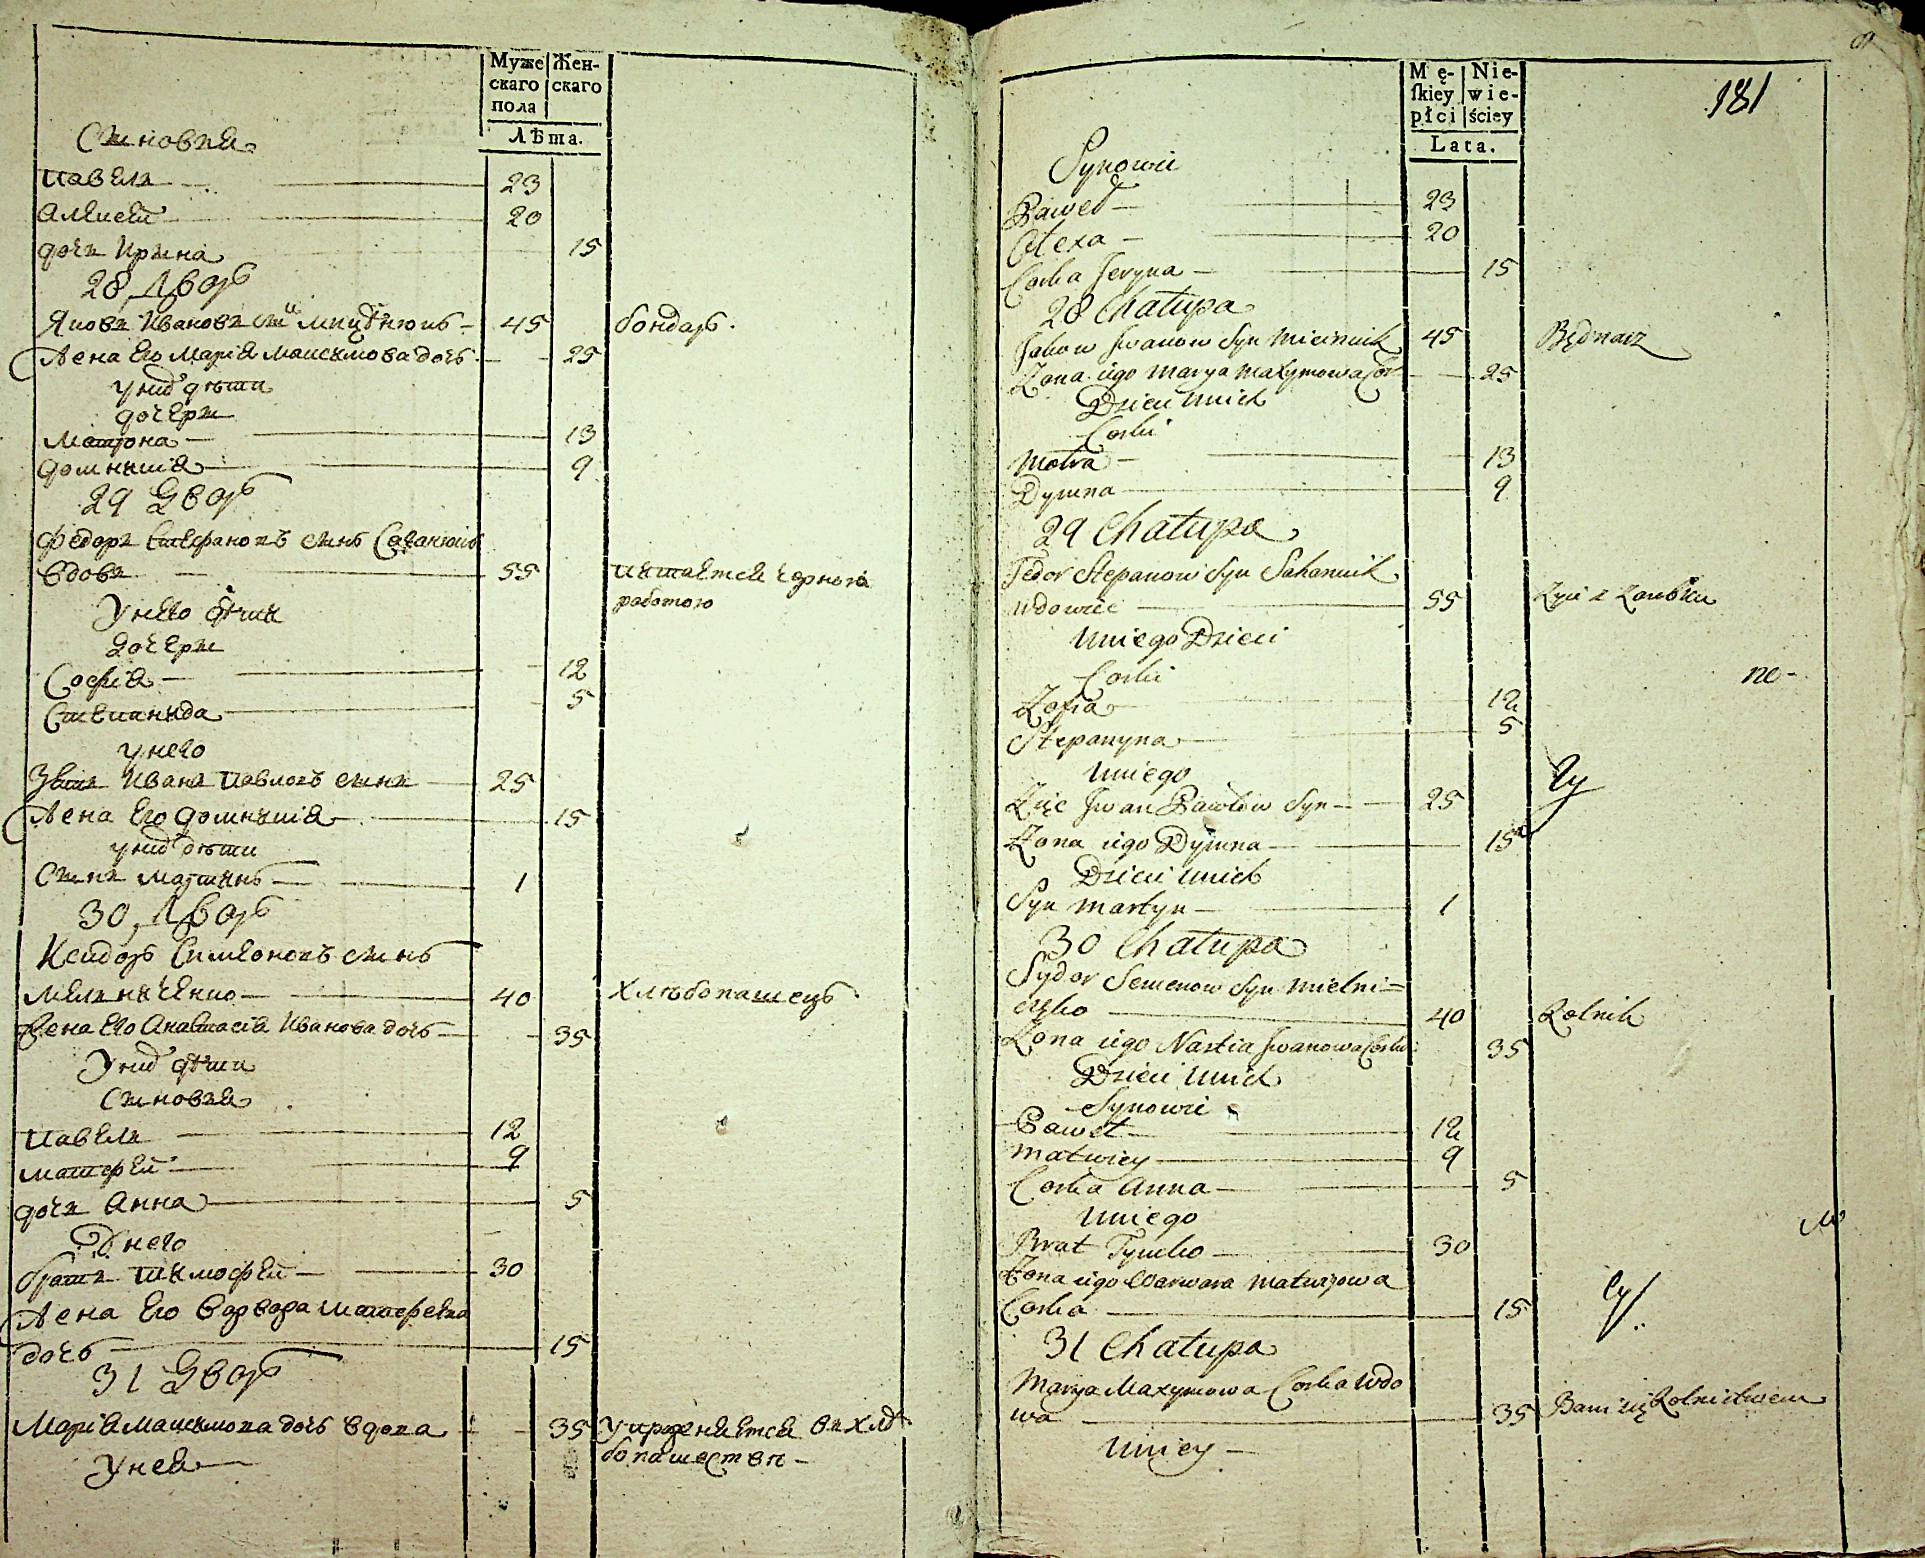 Муже
скаго
пола
Жен-
скаго
Лѣта.
Синовья
Павелъ 23
Алексей 20
дочь Ирина 15
28 Дворъ
Яковъ Ивановъ синъ 45 бондарь.
Жена Его Марія Максимова дочь 25
у них дѣти
дочери
Матрона 13
Домникія 9
29 Дворъ
Федоръ Стефановъ синъ
вдовъ 55 питается чорною
работою
У него дѣти
дочери
Софія 12
Степанида 5
у него
Зять Иванъ Павловъ синъ 25
Жена Его Домникія 15
у них дѣти
Синъ Мартинъ 1
30 Дворъ
Исидоръ Симеоновъ синъ
Мелниченко 40 хлѣбопашецъ.
Жена Его Анастасія Иванова дочь 35
У них дѣти
Синовья
Павелъ 12
Матфей 9
дочь Анна 5
У него
братъ Тимофей 30
Жена Его Варвара Матфеева
дочь 15
31 Дворъ
Марія Максимова дочь вдова 35 упражняется въ хлѣ
бопашествѣ
У нея
Mę-
ſkiey
płci
Nie-
wie-
ściey
Lata.
181
Synowie
Paweł 23
Olexa 20
Corka Jeryna 15
28 Chałupa
Jakow Jwanow Syn 45 Będnarz
Zona iego Marya Maxymowa Cor 25
Dzieci unich
Corki
Motra 13
Dymna 9
29 Chałupa
Fedor Stepanow Syn
wdowiec 55 Zyie z Zarobku
Uniego Dzieci
Corki
Zofia 12
Stepanyna 5
Uniego
Zięc Jwan Pawłow Syn 25
Zona iego Dymna 15
Dzieci unich
Syn Martyn 1
30 Chałupa
Sydor Semenow Syn Mielni=
czko 40 Rolnik
Zona iego Nastia Jwanowa Corka 35
Dzieci Unich
Synowie
Paweł 12
Matwiey 9
Corka Anna 5
Uniego
Brat Tymko 30
Zona iego Warwara Matwijowa
Corka 15
31 Chałupa
Marya Maxymowa Corka Wdo
wa 35 Bawi się Rolnictwem
Uniey